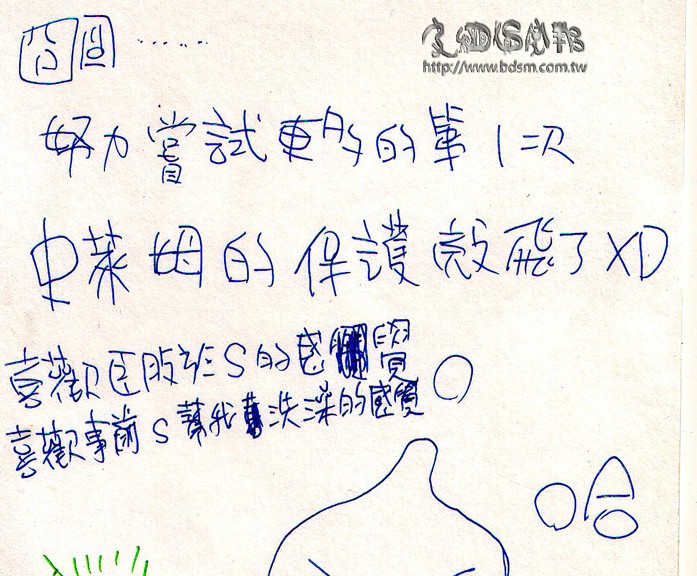 囧囧......
http://www.bdsm.com.tw
努力嘗試更多的第1次
史萊姆的保護殼飛了XD
喜歡臣服於S的感覺
喜歡事前S幫我洗澡的感覺
哈